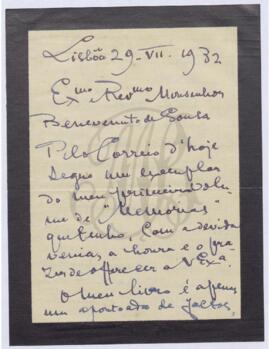 Lisbôa 29-VII. 1932
Exmo Revmo Monsenhor
Benevenuto de Sousa
Pelo Correio d'hoje
segue um exemplar
do meu primeiro volu-
me de "Memorias"
que tenho, com a devida
venia, a honra e o pra-
zer de offerecer a V. Exa.
O meu livro é apenas
um apontoado de factos,